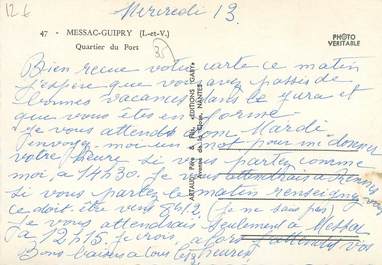 12 €
Mercredi 13
47 - MESSAC-GUIPRY (I.-et-V.)
Quartier du Port
PHOTO
VERITABLE
35
Bien reçue votre carte ce matin
j'espère que vous avez passés de
bonnes vacances dans le Jura et
que vous êtes en forme
Je vous attends donc Mardi
envoyez-moi un mot pour me donner
votre heure si vous partez comme
moi, à 14h30. Je vous attendrais à Rennes
si vous partez le matin renseignez-vous
ce doit être vers 9h1/2 (je ne sais pas)
Je vous attendrais seulement à Messac
à 12h15 je crois, alors j'attends vos
Bons baisers à tous les heures
ARTAUD Père & Fils "EDITIONS GABY"
Avenue de la Gloire, NANTES